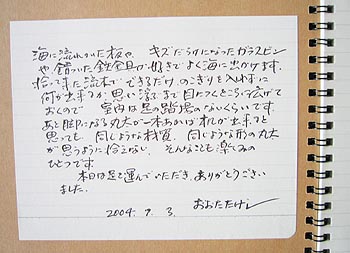 海に流れついた板や、キズだらけになったガラスビン
や、錆ついた鉄金具が好きでよく海に出かけます。
拾って来た流木で できるだけ のこぎりを入れずに
何が出来るか 思い浮ぶまで 目につくところに広げて
おくので 室内は足の踏場のないくらいです。
あと脚になる丸太が一本あれば 机が出来ると
思っても 同じような材質、同じような形の丸太
が思うように拾えない。そんなことも楽しみの
ひとつです。
本日は足を運んでいただき、ありがとうござい
ました。
2009. 9. 3.
おおたたけし